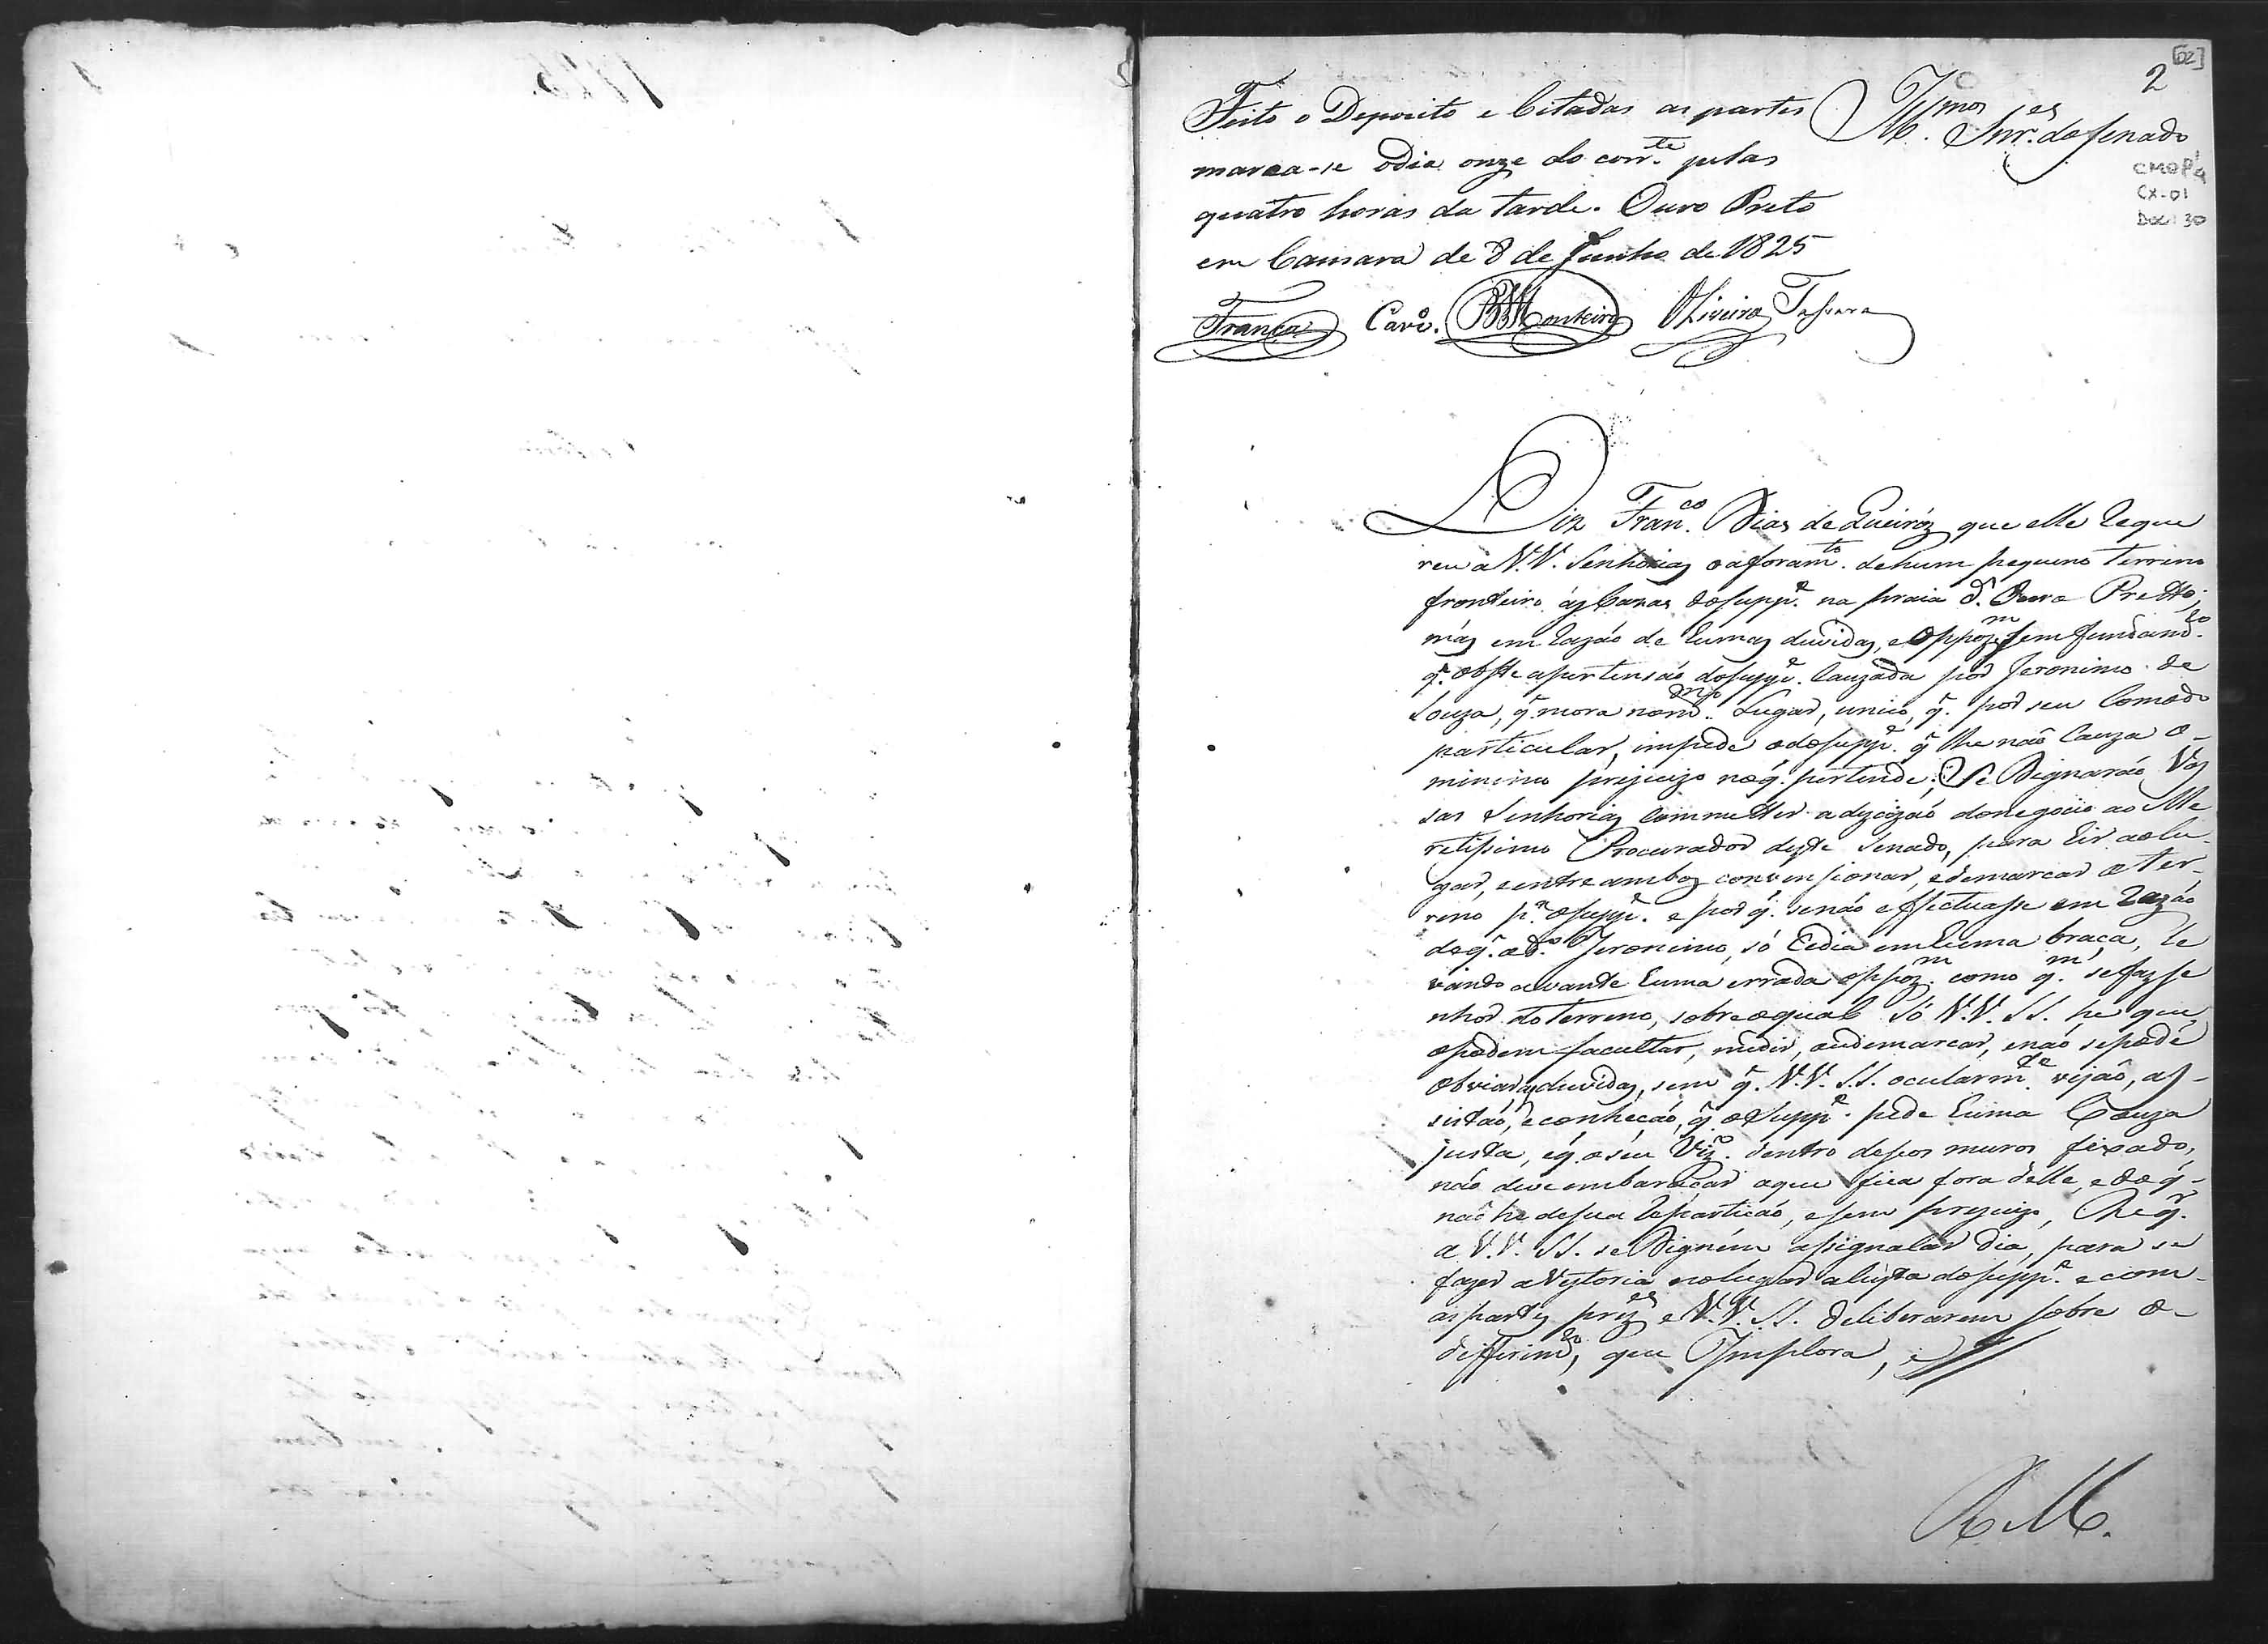 1825
[02]
2
Feito o Deposito e Citadas as partes
marca-se odia onze do corr.te pelas
quatro horas da tarde. Ouro Preto
em Camara de 8 de Junho de 1825
França Carv.o BMonteiro Oliveira
Ill.mos Snr.es do Senado
CMOP
CX-01
Doc: 30
Diz Fran.co Dias de Queiróz que elle Reque
reu a V.V. Senhorias o aforam.to de hum pequeno terreno
fronteiro ás Cazas do Supp.e na praia d. Ouro Pretto;
más em Razão de humas duvidas, e Oppoz.m sem fundam.to
q. obste apertensão dosupp.e cauzada por Jeronimo de
Souza, q. mora no m.mo Lugar, unico, q. por seu Comodo
particular, impede o do supp.e q lhe não Cauza o
minimo prejuizo no q. pertende; Se Dignarão Vos
sas Senhorias Commetter a dizizão do negocio ao Me
retissimo Procurador deste Senado, para hir ao lu-
gar, e entre ambos convensionar, e demarcar o ter-
reno p.a o supp.e e por q. se não effectuasse em Razão
do q. o d.o Jeronimo, só Cedia em huma braça, le
vando avante huma errada oppoz.m como q.m se faz se
nhor do terreno, sobre o qual só V.V. SS. he que
o podem facultar, medir, ou demarcar, e não se pode
obviar as duvidas, sem q. V.V. S.S. ocularm.te vejão, as-
sistão, e conheção, q. o Supp.e pede huma Couza
justa, e q. o seu Viz.o dentro de seos muros fixado,
não deve embaraçar aque fica fora delle, e do q-
não he de sua Repartição, e sem prejuizo,
a V.V. SS. se Dignem assignalar dia, para se
fazer a Vistoria no lugar a custa do supp.e e com
as partes prez.es e V.V. SS. deliberarem sobre o
differim.to, que Implora, e
R. M.